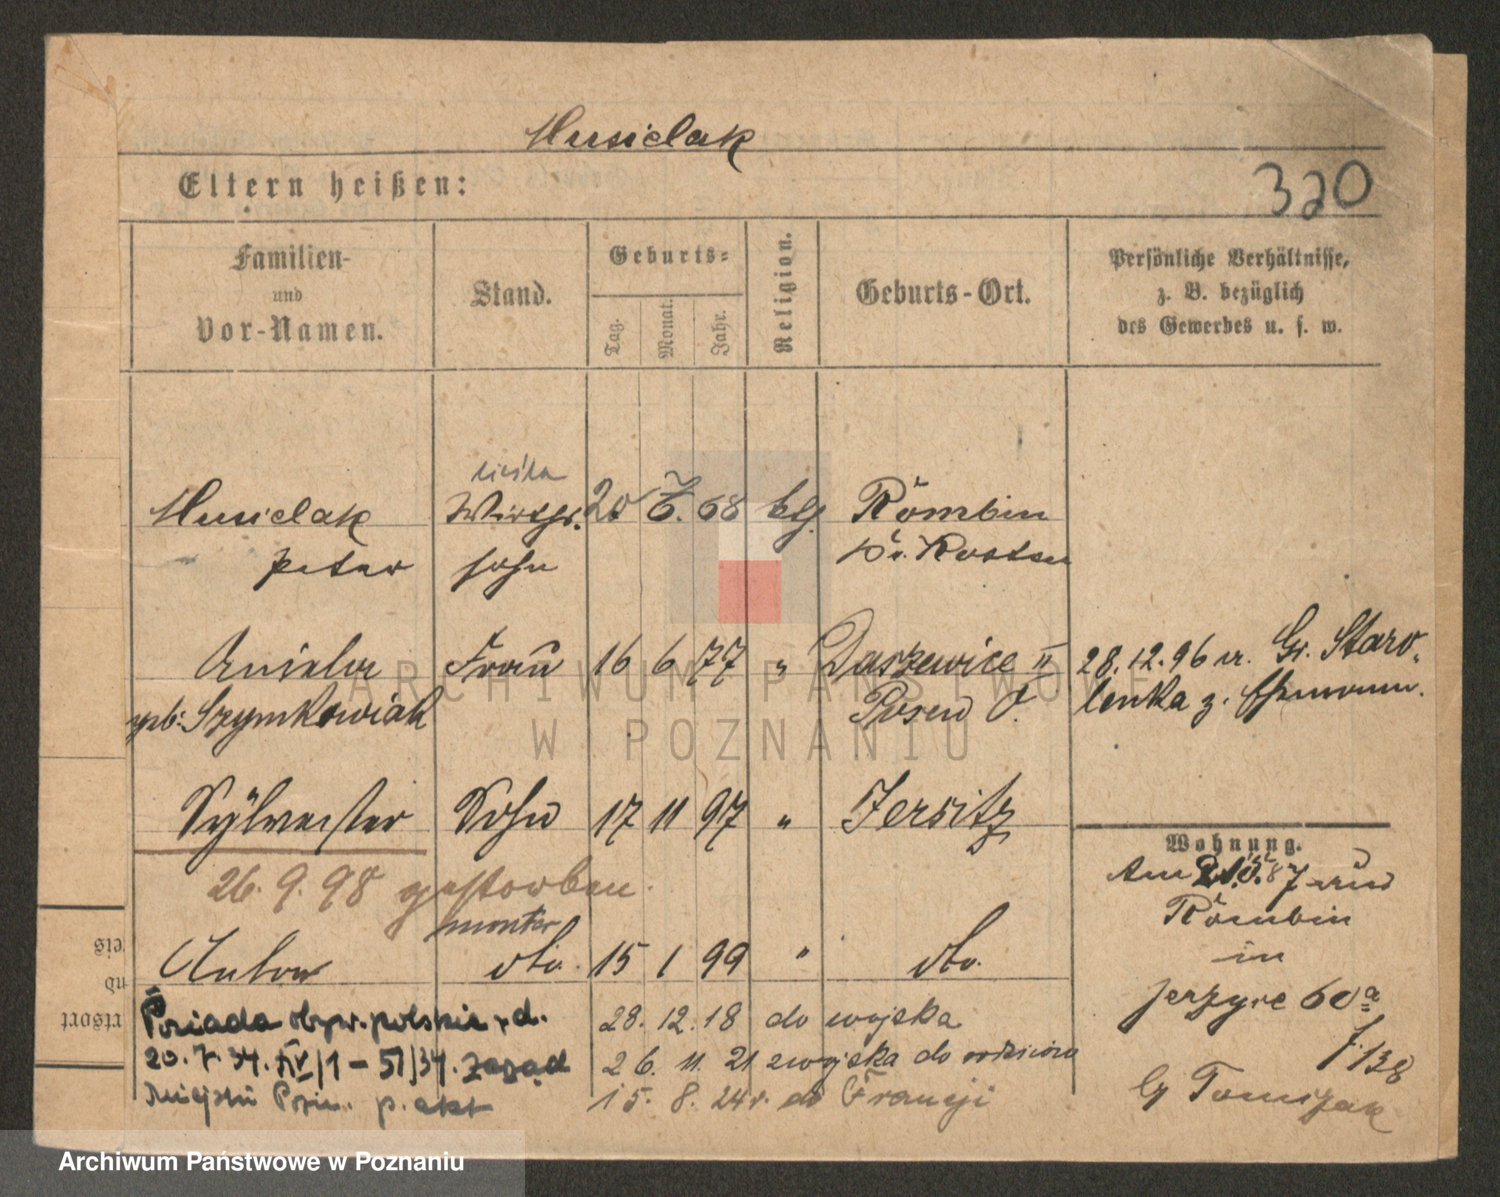 Musielak
Eltern heißen:
320
Familien-
und
Vor-Namen.
Stand.
Geburts-
Tag.
Monat.
Jahr.
Religion.
Geburts-Ort.
Persönliche Verhältnisse,
z. B. bezüglich
des Gewerbes u. s. w.
Musielak Wirths. 20 68 Rombin
Peter sohn Kr. Kosten
Aniela Frau 16 6 77 " Daszewice 28.12.96 Gr. Staro-
geb: Szymkowiak Posen O. lenka z.
Sylvester Sohn 17 11 97 " Jersitz
26. 9. 98 gestorben.
monter
Anton dto. 15 1 99 " dto.
Posiada obyw. polskie 28. 12. 18 do wojska
20. 7. 34. IV/1 - 51/34. Zarząd 26. 11. 21 z wojska do
Miejski Pozn. p. akt 15. 8. 24 r. do Francji
Wohnung.
Am 87 aus
Rombin
in
Jerzyce 60a
b/ Tomczak
eis
nd
rtsort
ARCHIWUM PAŃSTWOWE
W POZNANIU
Archiwum Państwowe w Poznaniu